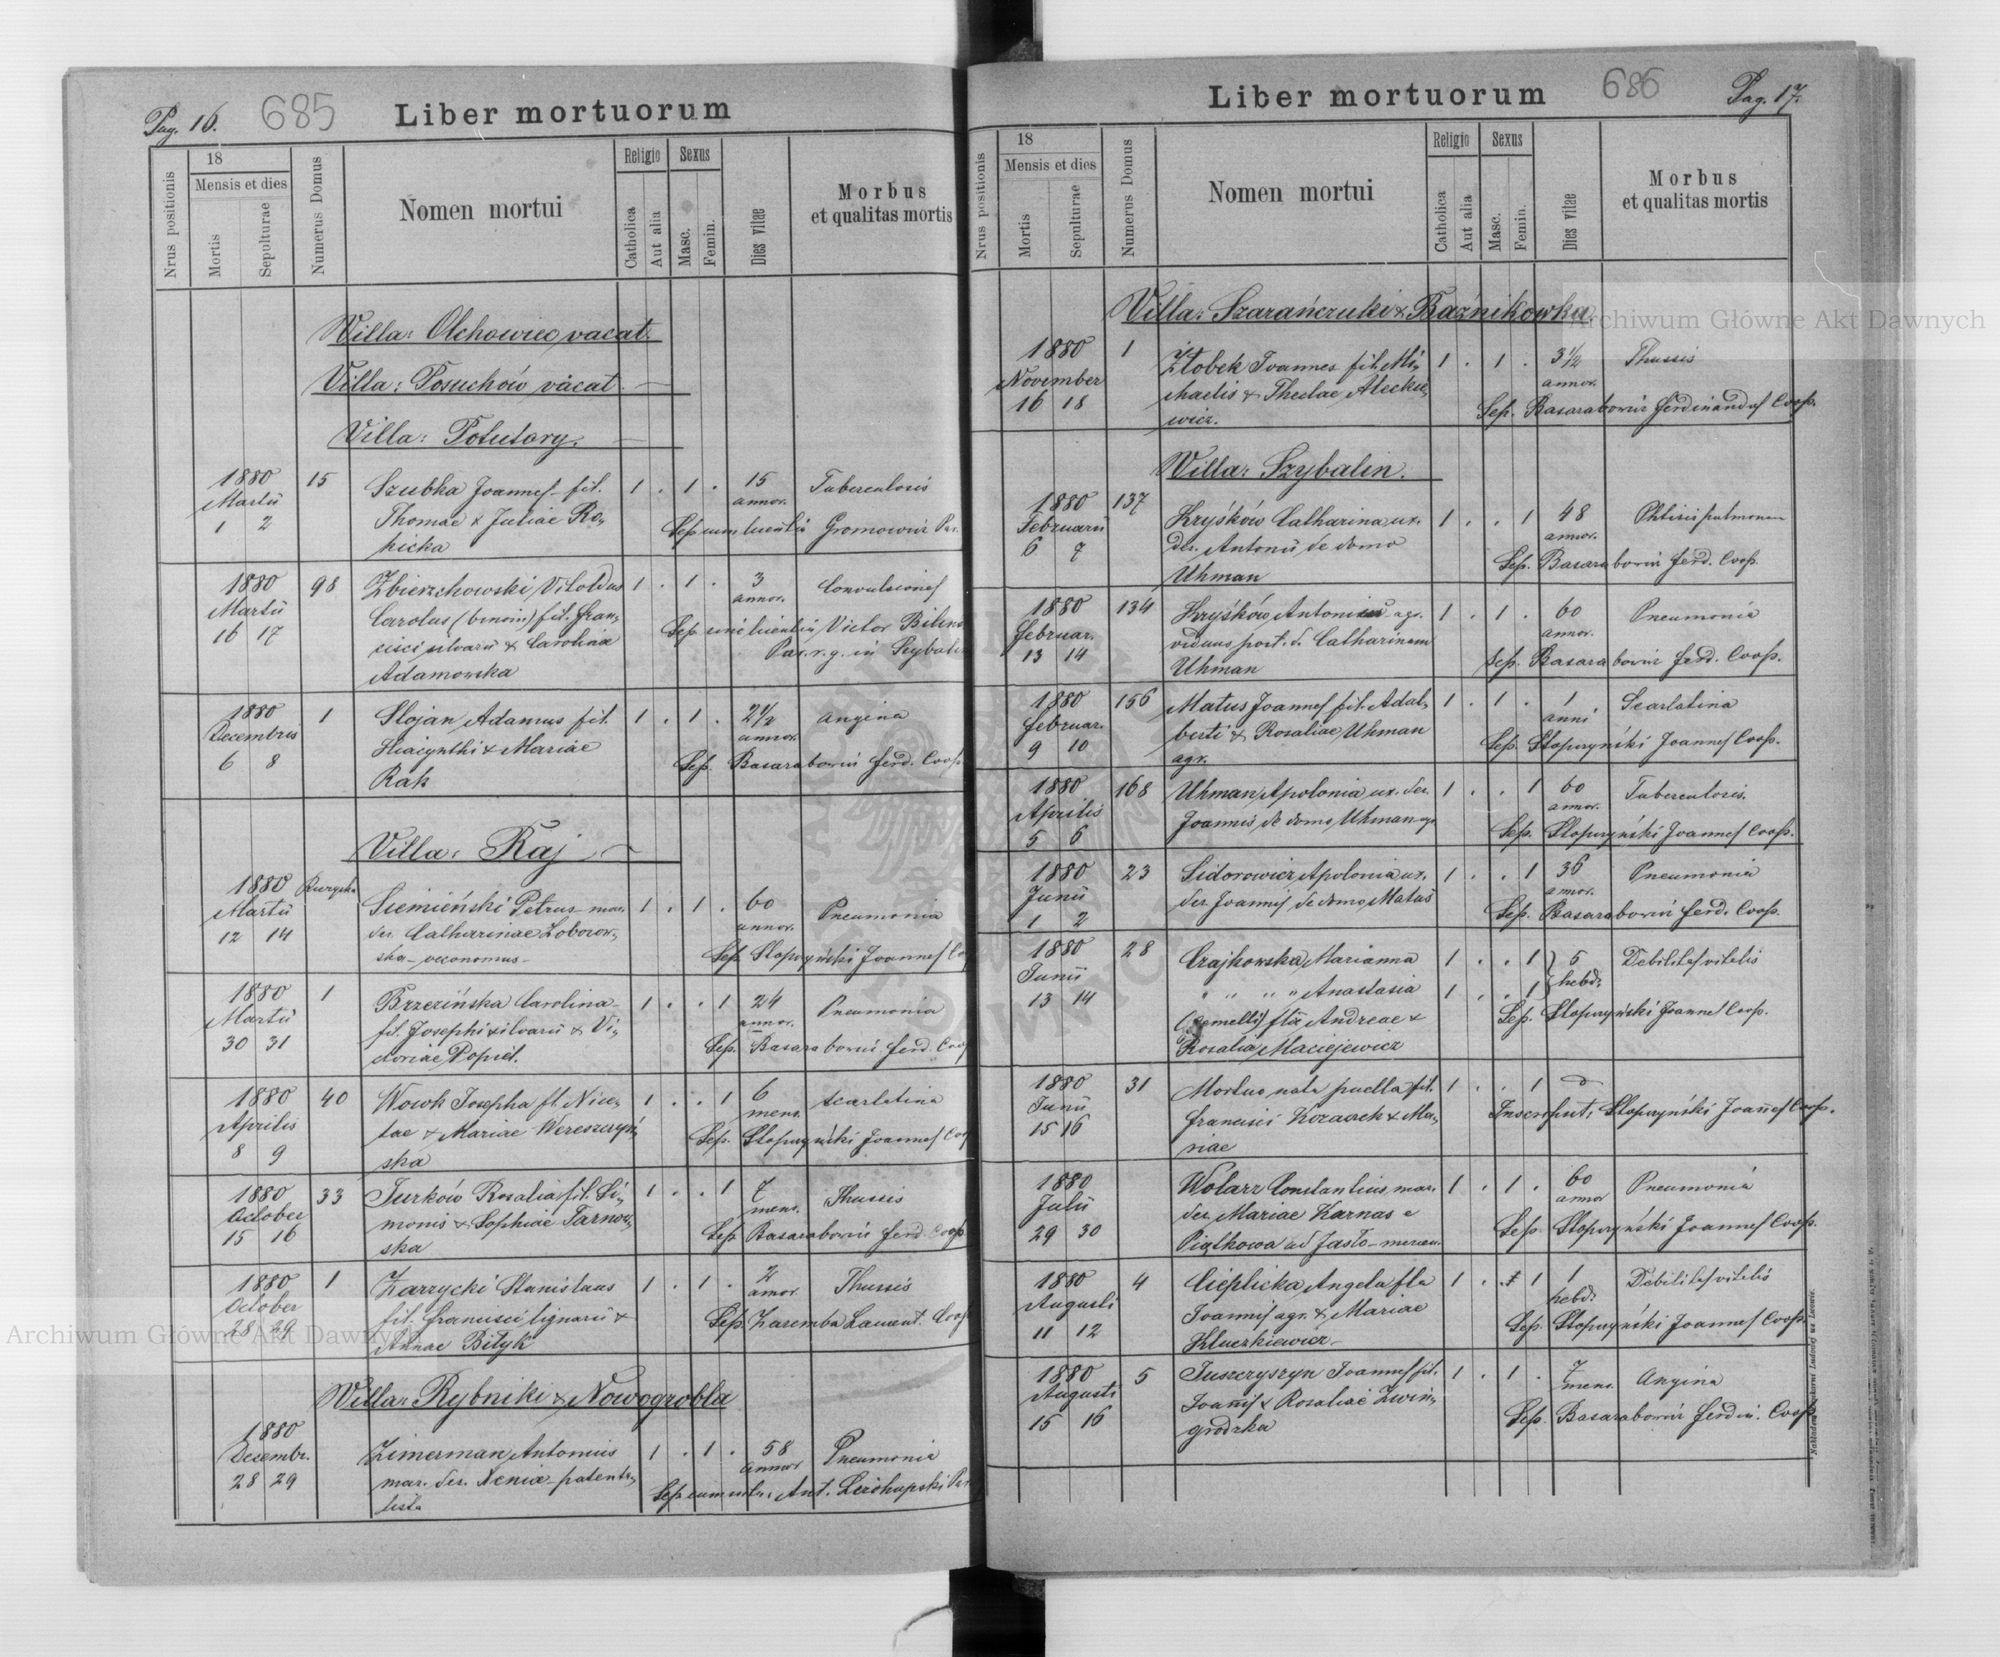 Pag. 16. 685 Liber mortuorum
Nrus positionis
18
Mensis et dies
Mortis
Sepulturae
Numerus Domus
Nomen mortui
Religio
Catholica
Aut alia
Sexus
Masc.
Femin.
Dies vitae
Morbus
et qualitas mortis
Villa: Olchowiec vacat.
Villa: Posuchów vacat.
Villa: Potutory.
1880 15 Szubka Joannes fil. 1 . 1 . 15 Tuberculosis
Martii Thomae & Juliae Ro- annor.
1 2 kicka Sep. cum licentia Gromowicz Par.
1880 98 Zbierzchowski Vitoldus 1 . 1 . 3 Convulsiones
Martii Carolus (binom) fil. Fran- annor.
16 17 cisci silvarii & Carolina Sep. Victor
Adamowska Par. r. g. in Szybalin
1880 1 Stojan Adamus fil. 1 . 1 . 2 1/2 Angina
Decembris Hiacynthi & Mariae annor.
6 8 Rak Sep. Basarabowicz Ferd. Coop.
Villa: Raj
1880 Siemieński Petrus mar. 1 . 1 . 60 Pneumonia
Martii der. Catharinae Zoborow- annor.
12 14 ska oeconomus Sep. Stopczyński Joannes
1880 1 Brzezińska Carolina 1 . . 1 24 Pneumonia
Martii fil. Josephi silvarii & Vi- annor.
30 31 ctoriae Popiel. Sep. Basarabowicz Ferd. Coop
1880 40 Wowk Josepha fl. Nice- 1 . . 1 6 Scarlatina
Aprilis tae & Mariae Wereszczyń- mens.
8 9 ska Sep. Stopczyński Joannes Coop
1880 33 Turków Rosalia fil. Si- 1 . . 1 7 Thussis
October monis & Sophiae Tarnow- mens.
15 16 ska Sep. Basarabowicz Ferd. Coop
1880 1 Zarzycki Stanislaus 1 . 1 . Thussis
October fil. Francisci lignarii & annor.
28 29 Annae Bilyk Sep. Zaremba Laurent. Coop
Villa: Rybniki & Nowogrobla
1880 Zimerman Antonius 1 . 1 . 58 Pneumonia
Decembr. mar. der. Xenia patenta- annor.
28 29 lista Sep. Ant.
Liber mortuorum 686 Pag. 17.
Nrus positionis
18
Mensis et dies
Mortis
Sepulturae
Numerus Domus
Nomen mortui
Religio
Catholica
Aut alia
Sexus
Masc.
Femin.
Dies vitae
Morbus
et qualitas mortis
Villa: Szarańczuki & Baźnikowka
1880 1 Żłobek Joannes fil. Mi- 1 . 1 . 3 1/2 Thussis
November chaelis & Theclae Aleckie- annor.
16 18 wicz. Sep. Basarabowicz Ferdinandus Coop.
Villa: Szybalin.
1880 137 Kryśków Catharina ux. 1 . . 1 48 Phtisis pulmonum
Februarii der. Antonii de domo annor.
6 7 Uhman Sep. Basarabowicz Ferd. Coop.
1880 134 Kryśków Antonius agr. 1 . 1 . 60 Pneumonia
Februar. viduus post. d. Catharinam annor.
13 14 Uhman Sep. Basarabowicz Ferd. Coop.
1880 156 Matus Joannes fil. Adal- 1 . 1 . 1 Scarlatina
Februar. berti & Rosaliae Uhman anni
9 10 agr. Sep. Stopczyński Joannes Coop.
1880 168 Uhman Apolonia ux. der. 1 . . 1 60 Tuberculosis.
Aprilis Joannis de domo Uhman agr. annor.
5 6 Sep. Stopczyński Joannes Coop.
1880 23 Sidorowicz Apolonia ux. 1 . . 1 36 Pneumonia
Junii der. Joannis de domo Matus annor.
1 2 Sep. Basarabowicz Ferd. Coop.
1880 28 Czajkowska Marianna 1 . . 1 5 Debilitas vitalis
Junii " " " " Anastasia 1 . . 1 hebd.
13 14 (gemelli) flae Andreae & Sep. Stopczyński Joannes Coop.
Rosalia Maciejewicz
1880 31 Mortuo nata puella fil. 1 . . 1
Junii Francisci Kozaaek & Ma- Inscripsit. Stopczyński Joannes Coop.
15 16 riae
1880 Wolarz Constantius mar. 1 . 1 . 60 Pneumonia
Julii der. Mariae Karnas e annor
29 30 Piątkowa ad Jasło - mercen. Sep. Stopczyński Joannes Coop.
1880 4 Cieplicka Angela fla 1 . . 1 1 Debilitas vitalis
Augusti Joannis agr. & Mariae hebd.
11 12 Kluczkiewicz Sep. Stopczyński Joannes Coop.
1880 5 Juszczyszyn Joannes fil. 1 . 1 . 7 Angina
Augusti Joannis & Rosaliae Zwin- mens.
15 16 grodzka Sep. Basarabowicz Ferdin. Coop.
Archiwum Główne Akt Dawnych
Archiwum Główne Akt Dawnych